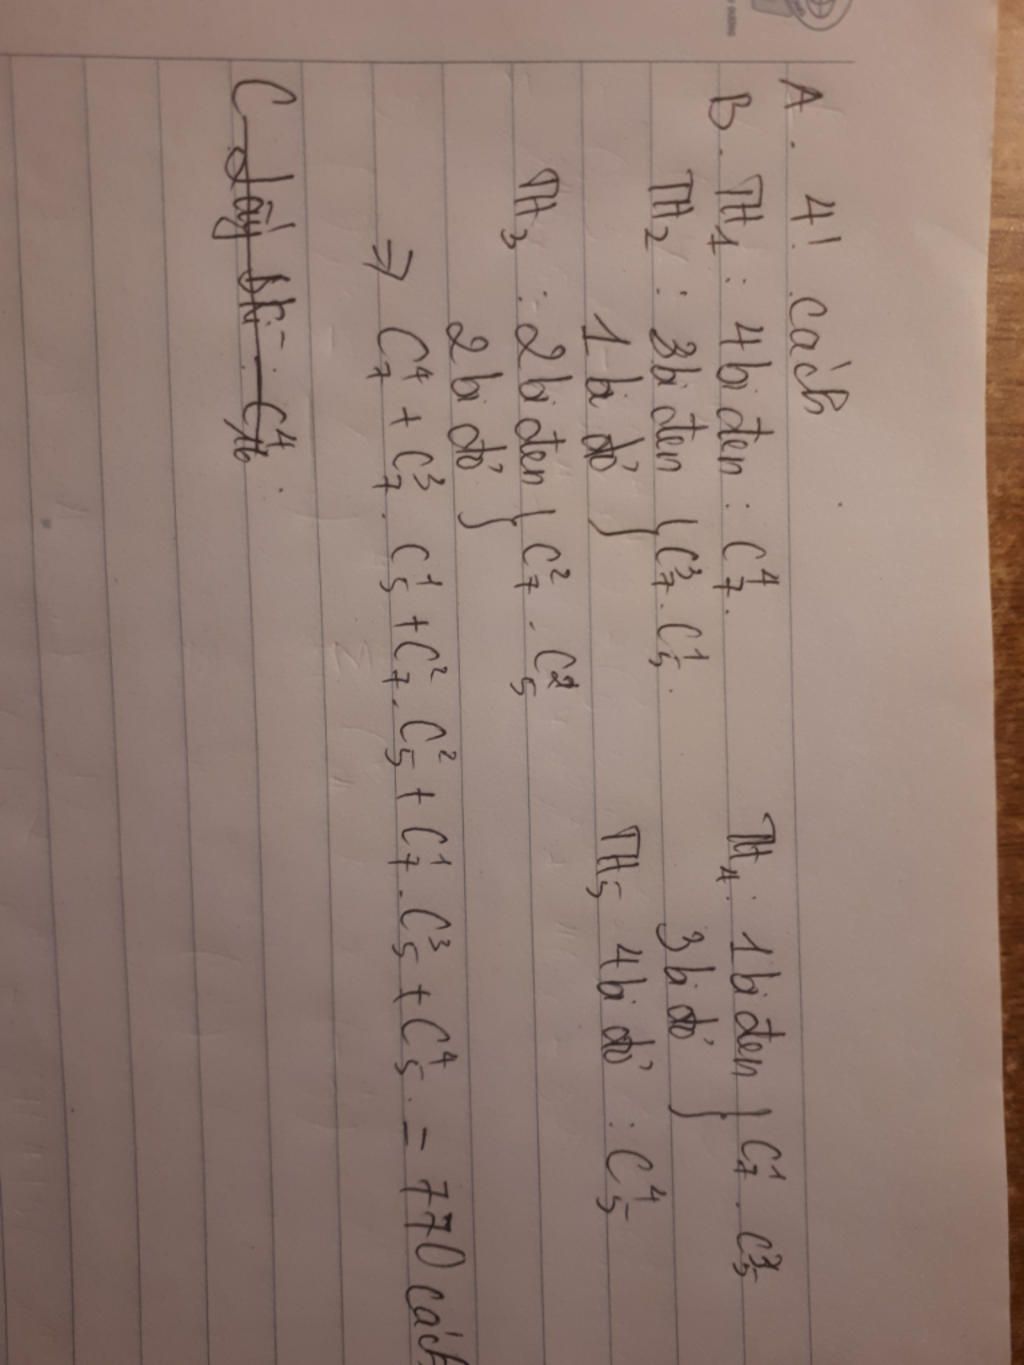 A. 4! cách
B. TH₁ : 4 bi đen : C₇⁴.
TH₂ : 3 bi đen } C₇³ . C₅¹.
1 bi đỏ
TH₃ : 2 bi đen } C₇² . C₅²
2 bi đỏ
TH₄ : 1 bi đen } C₇¹ . C₅³
3 bi đỏ
TH₅ 4 bi đỏ : C₅⁴
⇒ C₇⁴ + C₇³ . C₅¹ + C₇² . C₅² + C₇¹ . C₅³ + C₅⁴ = 770 cách
C Lấy bi : C₁₆⁴.